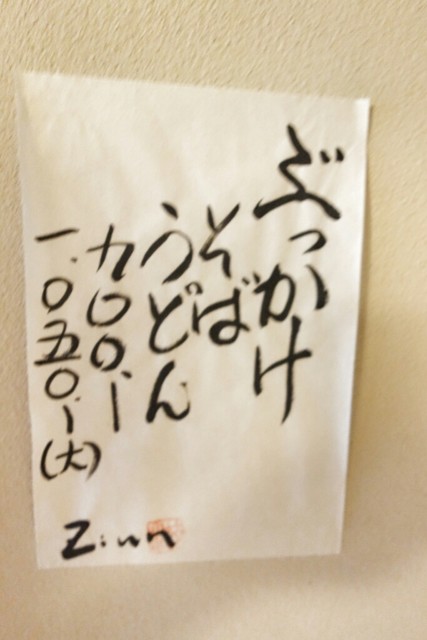 ぶっかけ
そば
うどん
九〇〇.ー
一.〇五〇.ー(大)
Zinn